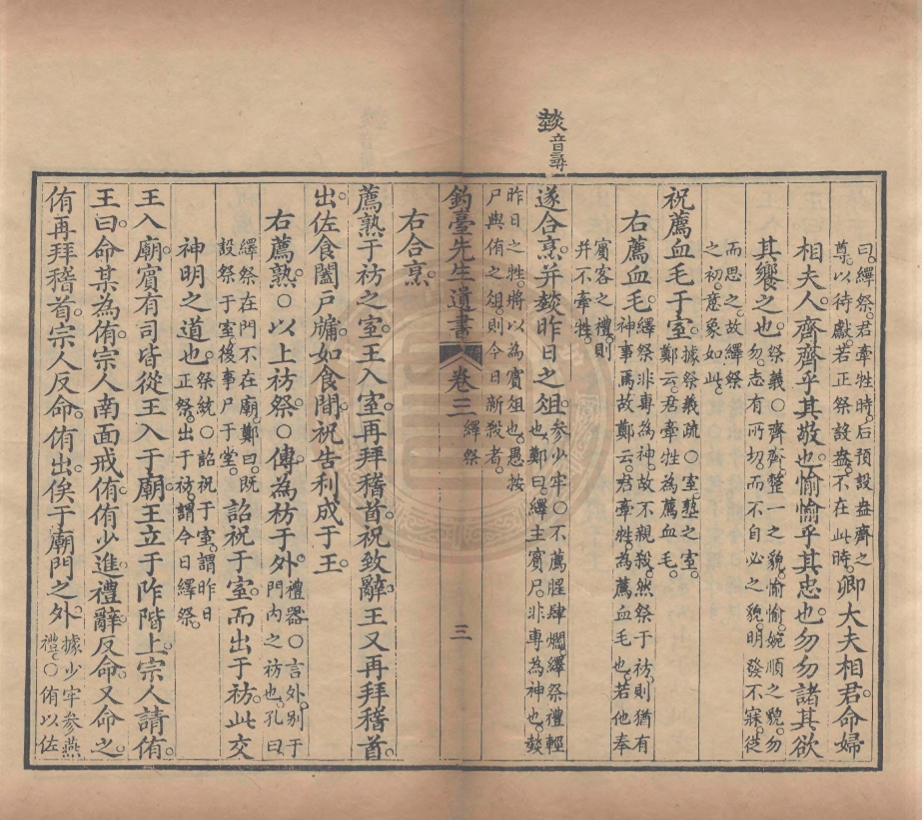 燅音尋
曰繹祭君牽牲時后預設盎齊之
尊以待獻若正祭設盎不在此時卿大夫相君命婦
相夫人齊齊乎其敬也愉愉乎其忠也勿勿諸其欲
其饗之也祭義○齊齊整一之貌愉愉婉順之貌勿
勿志有所切而不自必之貌明發不寐從
而思之故繹祭
之初意象如此
祝薦血毛于室據祭義疏○室塾之室
鄭云君牽牲為薦血毛
右薦血毛繹祭非專為神故不親殺然祭于祊則猶有
神事焉故鄭云君牽牲為薦血毛也若他奉
賓客之禮則
並不牽牲
遂合烹并燅昨日之俎參少牢○不薦腥肆爓繹祭禮輕
也鄭曰繹主賓尸非專為神也燅
昨日之牲將以為賓俎也愚按
尸與侑之俎則今日新殺者
釣臺先生遺書 卷三 繹祭 三
右合烹
薦熟于祊之室王入室再拜稽首祝致辭王又再拜稽首
出佐食闔戶牖如食間祝告利成于王
右薦熟○以上祊祭○傳為祊于外禮器○言外別于
門內之祊也孔曰
繹祭在門不在廟鄭曰既
設祭于室後事尸于堂詔祝于室而出于祊此交
神明之道也祭統○詔祝于室謂昨日
正祭出于祊謂今日繹祭
王入廟賓有司皆從王入于廟王立于阼階上宗人請侑
王曰命某為侑宗人南面戒侑侑少進禮辭反命又命之
侑再拜稽首宗人反命侑出俟于廟門之外據少牢參燕
禮○侑以佐